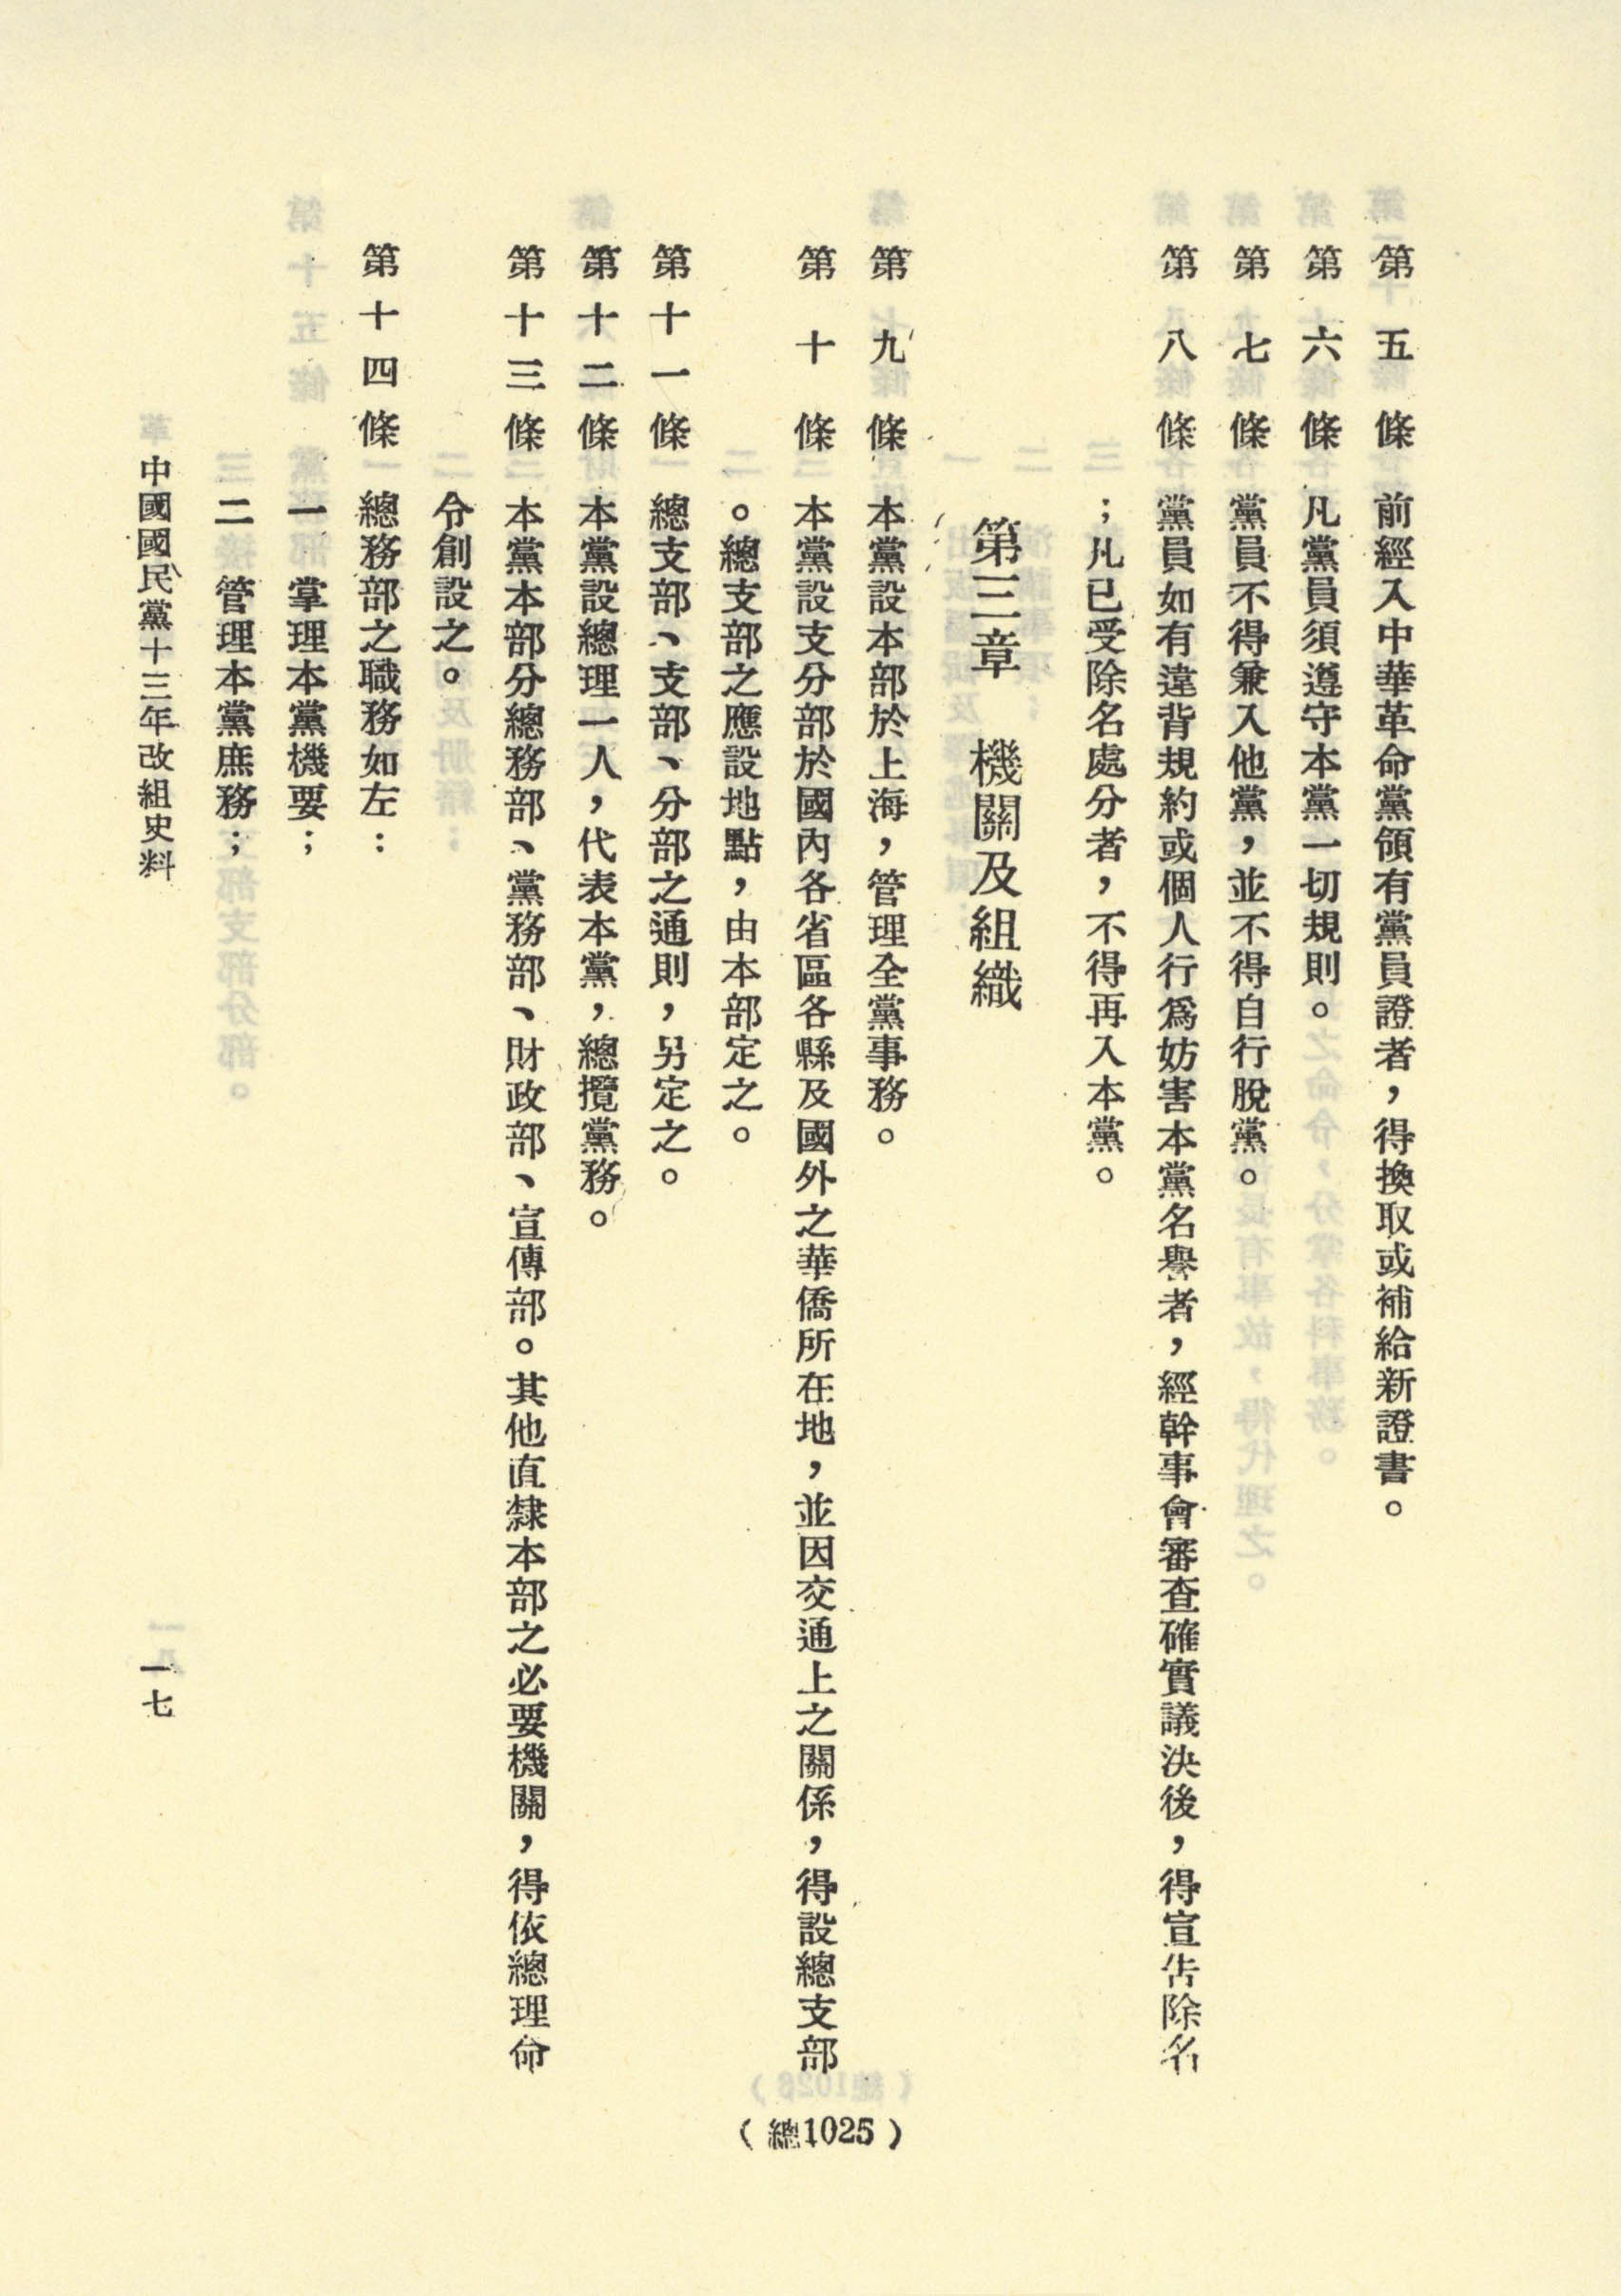 第五條　前經入中華革命黨領有黨員證者，得換取或補給新證書。
第六條　凡黨員須遵守本黨一切規則。
第七條　黨員不得兼入他黨，並不得自行脫黨。
第八條　黨員如有違背規約或個人行爲妨害本黨名譽者，經幹事會審查確實議決後，得宣告除名
；凡已受除名處分者，不得再入本黨。
第三章　機關及組織
第九條　本黨設本部於上海，管理全黨事務。
第十條　本黨設支分部於國內各省區各縣及國外之華僑所在地，並因交通上之關係，得設總支部
。總支部之應設地點，由本部定之。
第十一條　總支部、支部、分部之通則，另定之。
第十二條　本黨設總理一人，代表本黨，總攬黨務。
第十三條　本黨本部分總務部、黨務部、財政部、宣傳部。其他直隸本部之必要機關，得依總理命
令創設之。
第十四條　總務部之職務如左：
一　掌理本黨機要；
二　管理本黨庶務；
中國國民黨十三年改組史料
一七
（總1025）